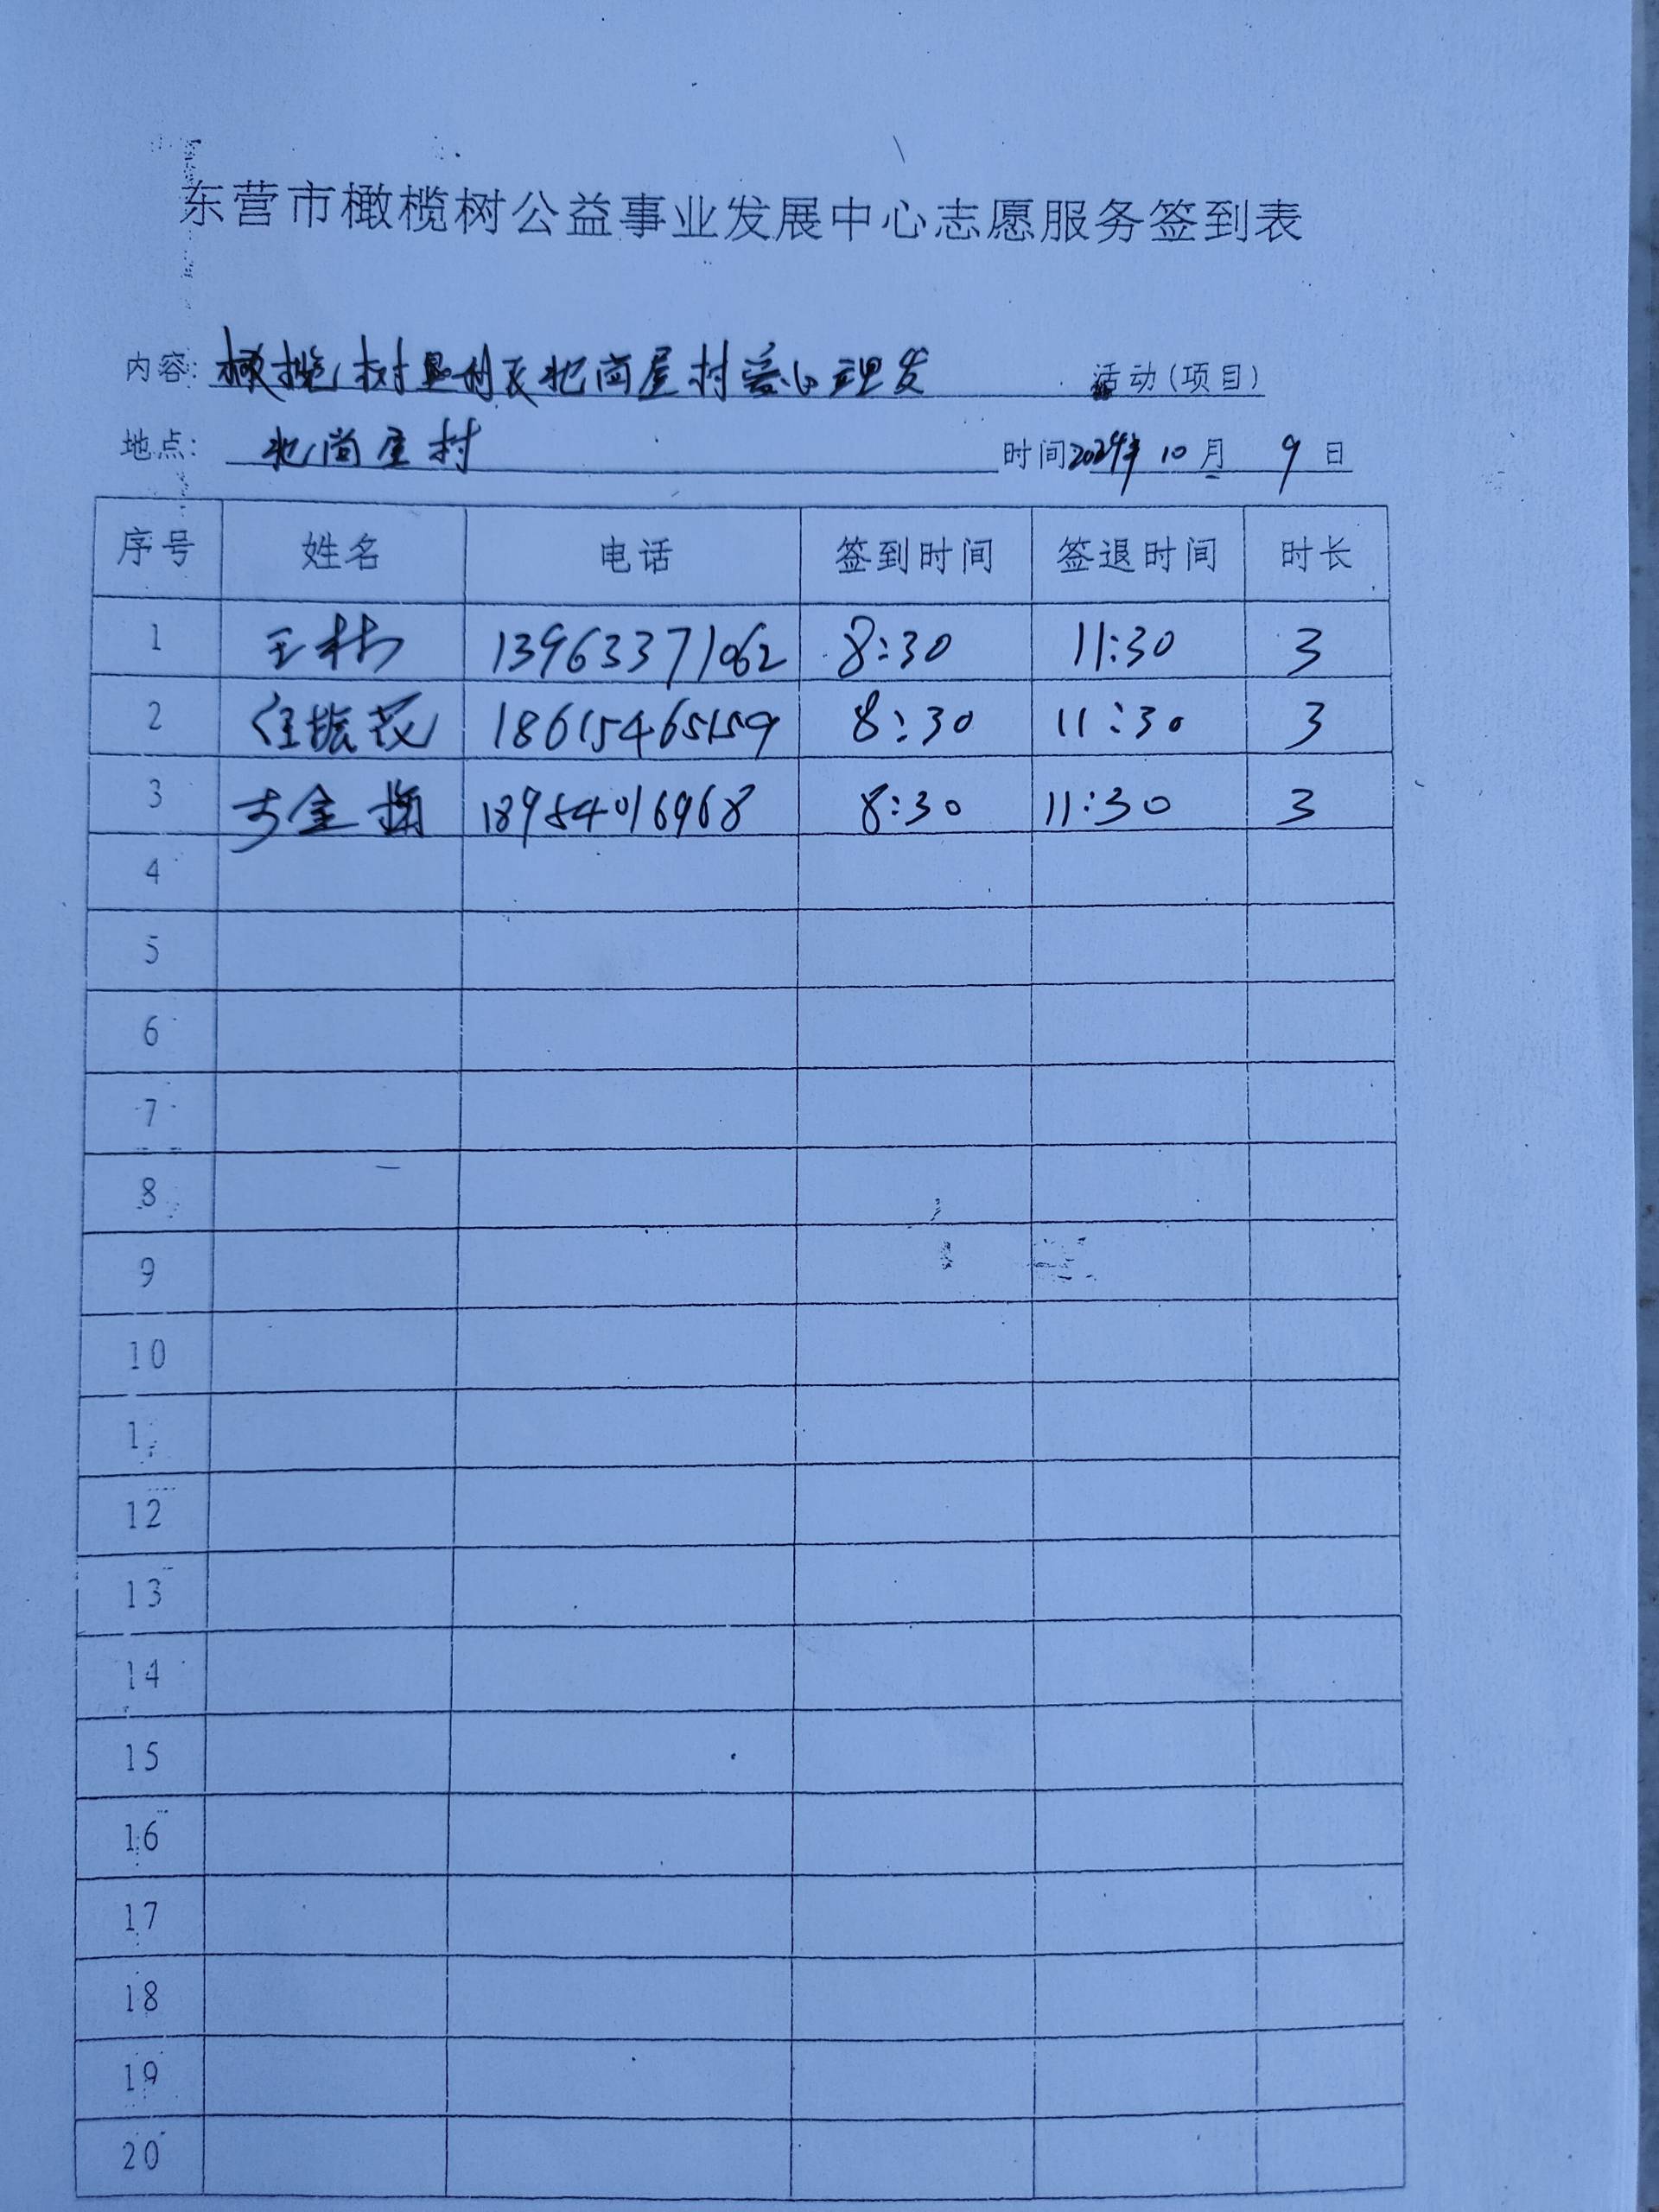 东营市橄榄树公益事业发展中心志愿服务签到表
内容: 橄榄树 北尚屋村爱心理发 活动(项目)
地点: 北尚屋村 时间2024年 10 月 9 日
序号 姓名 电话 签到时间 签退时间 时长
1 王树 13963371062 8:30 11:30 3
2 任振花 18615465159 8:30 11:30 3
3 金 18954016968 8:30 11:30 3
4
5
6
7
8
9
10
1
12
13
14
15
16
17
18
19
20